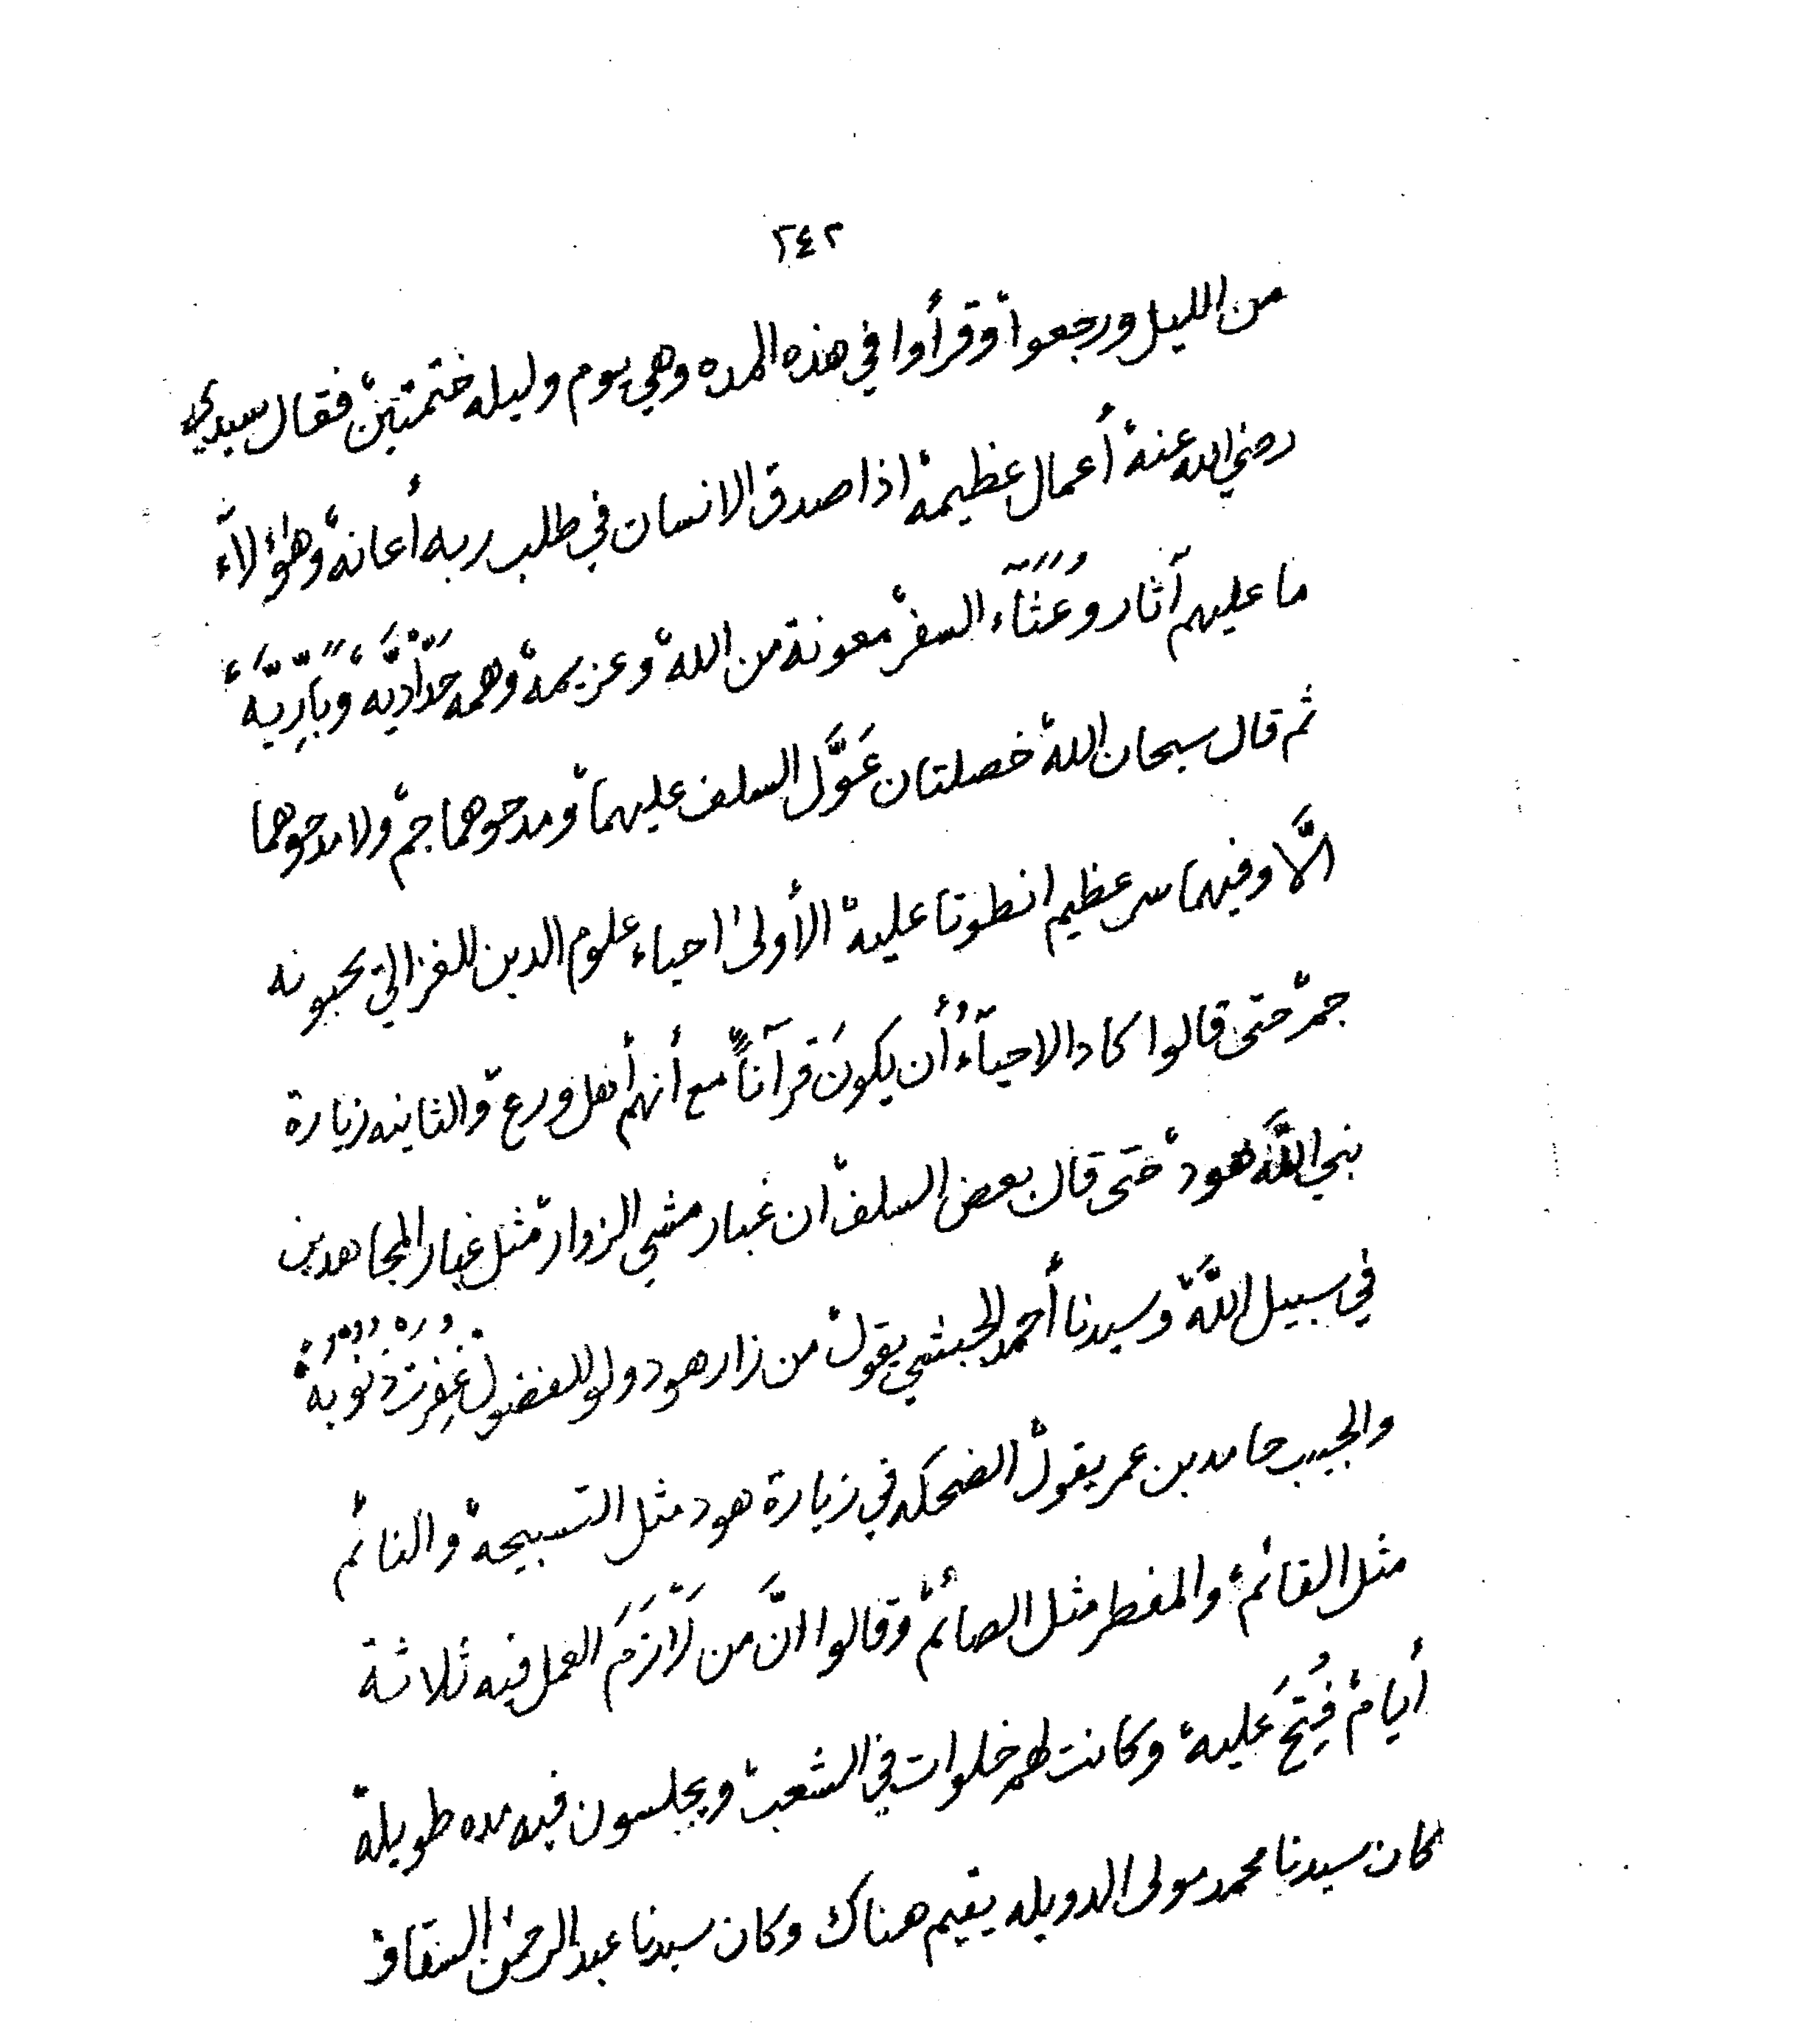 ٢٤٢
من الليل ورجعوا وقرأوا في هذه المده وهي يوم وليله ختمتين فقال سيدي
رضي الله عنه أعمال عظيمة اذا صدق الانسان في طلب ربه أعانه وهؤلآء
ما عليهم آثار وَعْثَآء السفر معونة من الله وعزيمة وهمه حَدَّادِيَّه وبَارِيَّه
ثم قال سبحان الله خصلتان عَوَّل السلف عليهما ومدحوهما جم ولا مدحوهما
الَّا وفيهما سر عظيم انطوتا عليه الأولى احياء علوم الدين للغزالي يحبونه
جم حتى قالوا كاد الاحيآءُ أن يكونَ قرآناً مع أنهم أهل ورع والثانيه زيارة
نبي اللَّه هود حتى قال بعض السلف ان غبار مشي الزوار مثل غبار المجاهدين
في سبيل اللَّه وسيدنا أحمد الحبشي يقول من زار هود ولو للفضول غُفِرَتْ ذُنُوبُهُ
والحبيب حامد بن عمر يقول الضحكه في زيارة هود مثل التسبيحة والنائم
مثل القائم والمفطر مثل الصائم وقالوا انَّ من لَازَمَ العمل فيه ثلاثة
أيام فُتِحَ عليه وكانت لهم خلوات في الشعب ويجلسون فيه مده طويلة
كان سيدنا محمد مولى الدويله يقيم هناك وكان سيدنا عبد الرحمن السقاف